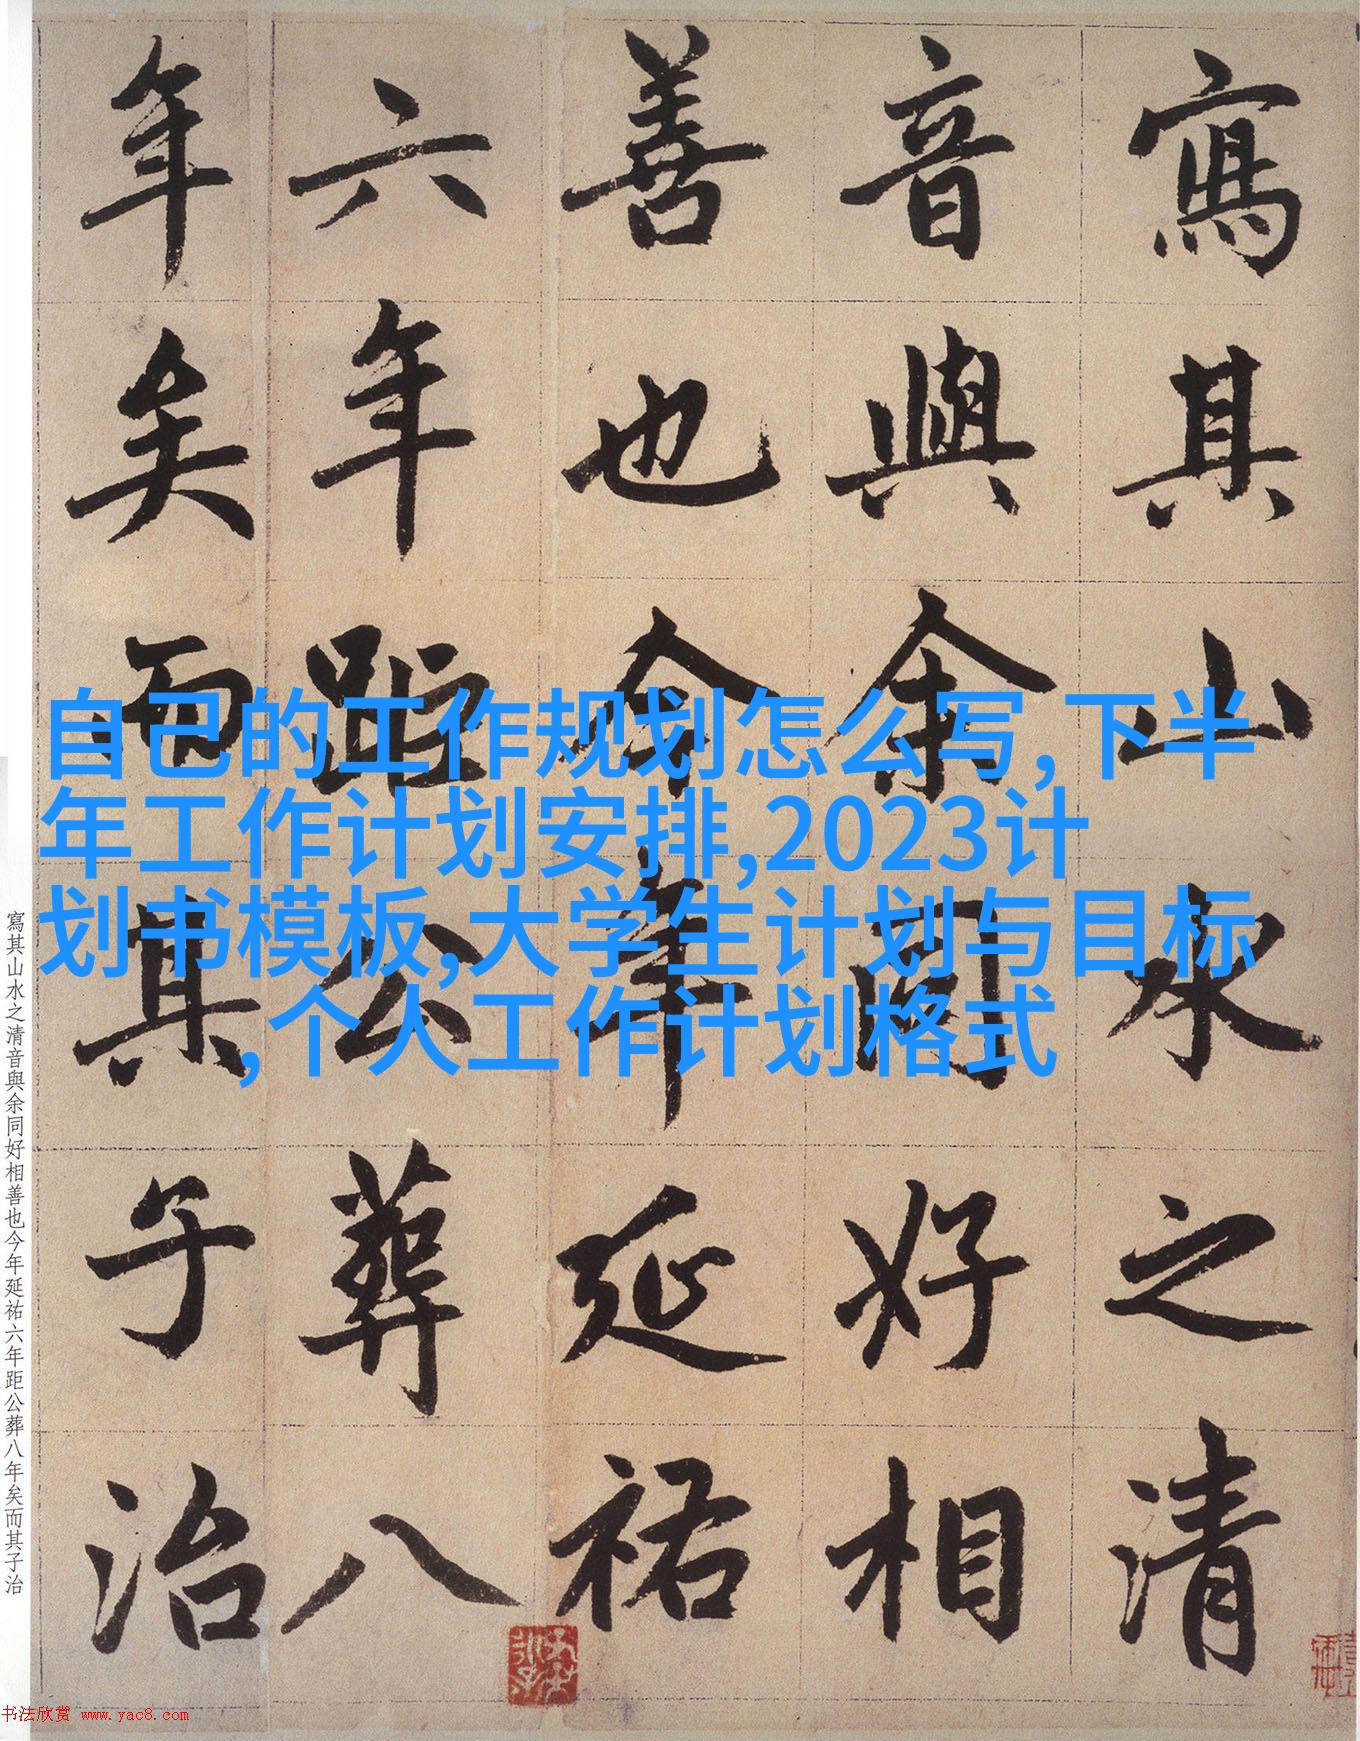 寫其山水之清
音與余同好相
善也今年延祐
六年距公葬八
年矣而其子治
自己的工作规划怎么写,下半
年工作计划安排,2023计
划书模板,大学生计划与目标
,个人工作计划格式
寫其山水之清音與余同好相善也今年延祐六年距公葬八年矣而其子治
书法欣赏 www.yac8.com